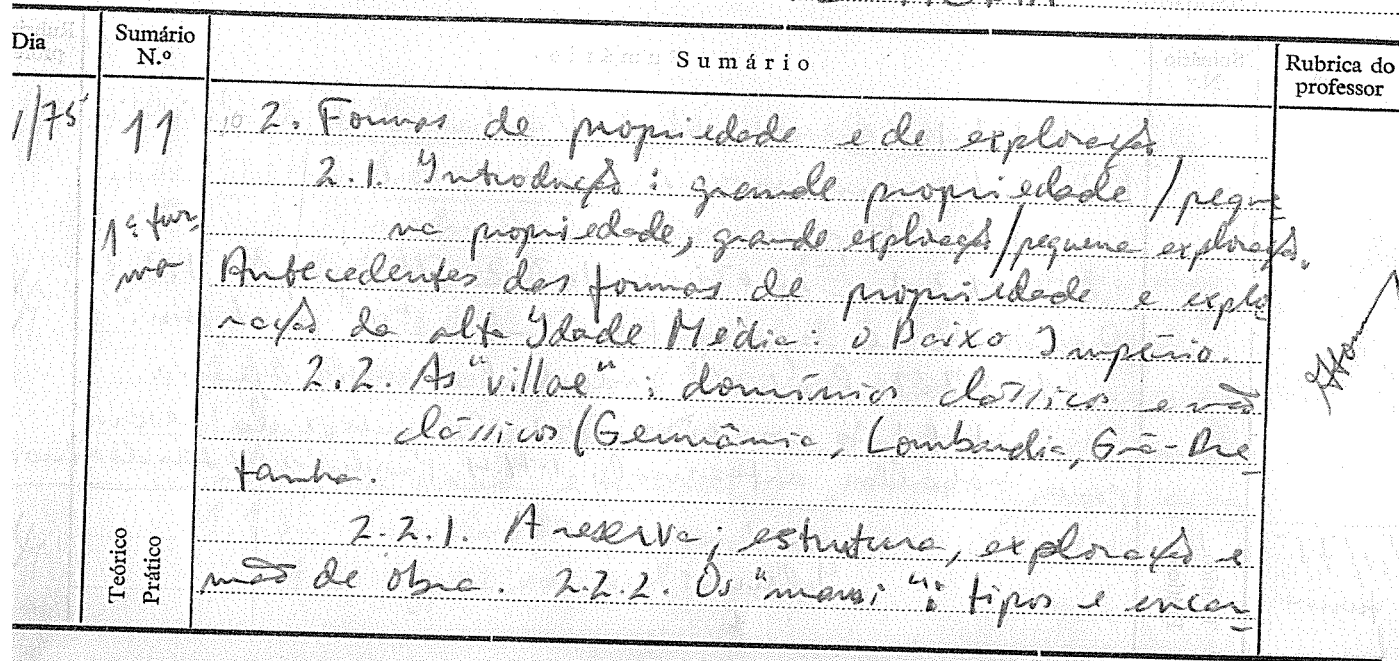 Dia
Sumário N.º
Sumário
Rubrica do professor
1/75
11
1ª tur-
ma
2. Formas de propriedade e de exploração
2.1. Introdução: grande propriedade / peque-
na propriedade, grande exploração/pequena exploração.
Antecedentes das formas de propriedade e explo-
ração da alta Idade Média: o Baixo Império.
2.2. As "villae": domínios clássicos e não
clássicos (Germânia, Lombardia, Grã-Bre-
tanha.
2.2.1. A reserva; estrutura, exploração e
mão de obra. 2.2.2. Os "mansi": tipos e encar-
Teórico
Prático